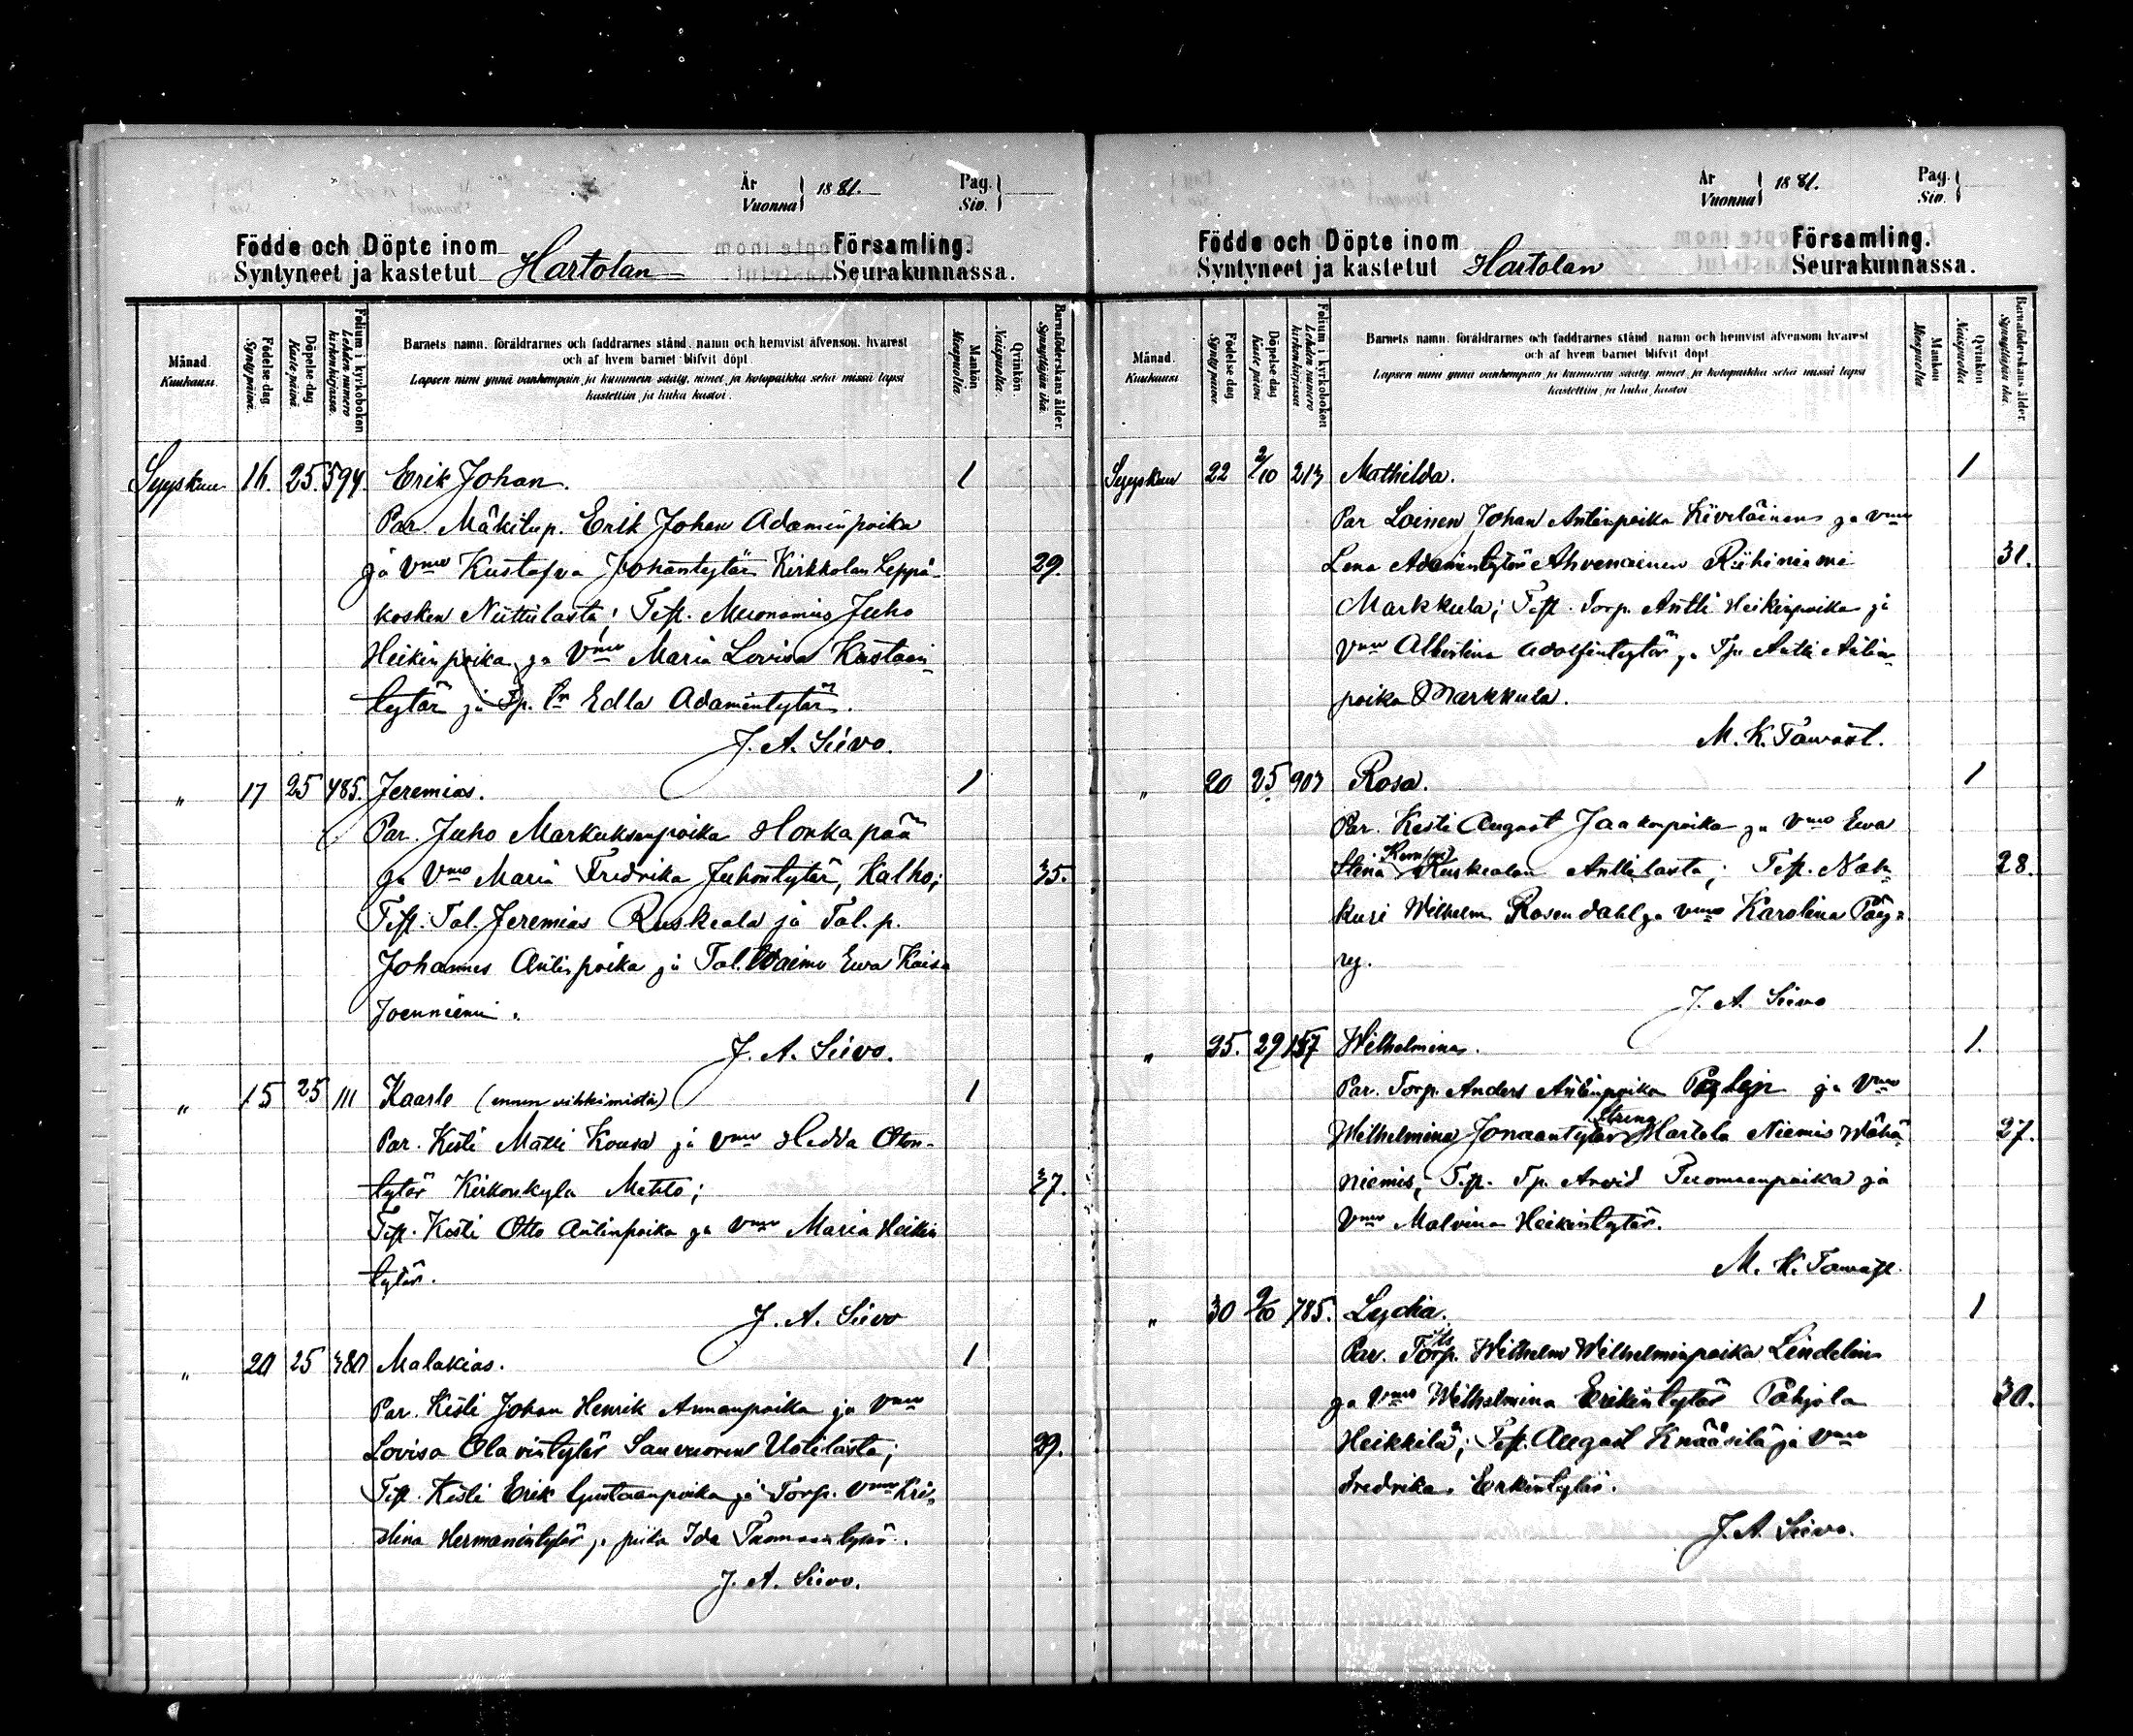 År
Vuonna 1881.
Pag.
Siv.
Födde och Döpte inom Församling.
Syntyneet ja kastetut Hartolan Seurakunnassa.
Månad. Kuukausi.
Födelse-dag. Syntypäivä.
Döpelse-dag. Kaste-päivä
Folium i kyrkoboken Lehden numero kirkonkirjassa.
Barnets namn, föräldrarnes och faddrarnes stånd, namn och hemvist äfvensom, hvarest
och af hvem barnet blifvit döpt.
Lapsen nimi ynnä vanhempain ja kummein sääty, nimet ja kotopaikka sekä missä lapsi
kastettiin ja kuka kastoi.
Mankön Miespuolia.
Qvinkön. Naispuolia.
Barnaföderskans ålder. Synnyttäjän ikä.
Syyskuu 16. 25. 594. Erik Johan. 1
Par. Mäkitup. Erik Johan Adaminpoika
ja Vmo Kustafva Johantytär Kirkkolan Leppä- 29.
kosken Niittilästä; Test. Muonamies Juho
Heikinpoika ja Vmo Maria Lovisa Kustaan
tytär ja Tp. tr Edla Adamintytär.
J. A. Siivo.
" 17 25 485. Jeremias. 1
Par. Juho Markuksenpoika Honkapää
ja Vmo Maria Fredrika Juhontytär, Kalho; 35.
Test. Tal. Jeremias Ruskeala ja Tal. p.
Johannes Antinpoika ja Tal. Waimo Ewa Kaisa
Joenniemi.
J. A. Siivo.
" 15 25 111 Kaarle (ennen vihkimistä) 1
Par. Kesti Matti Kousa ja Vmo Hedda Oton-
tytär Kirkonkylä Mehto; 37.
Test. Kesti Otto Antinpoika ja Vmo Maria Heikin
tytär.
J. A. Siivo
" 20 25 380 Malakias. 1
Par. Kesti Johan Henrik Annanpoika ja Vmo
Lovisa Olavintytär Sauvuoren Uotilasta; 29.
Test. Kesti Erik Gustaanpoika ja Torp. Vmo Kri-
stina Hermanintytär ja piika Ida Tuomaantytär.
J. A. Siivo.
År
Vuonna 1881.
Pag.
Siv.
Födde och Döpte inom Församling.
Syntyneet ja kastetut Hartolan Seurakunnassa.
Månad. Kuukausi
Födelse dag Syntypäivä.
Döpelse-dag Kaste päivä
Folium i kyrkoboken Lehden numero kirkonkirjassa
Barnets namn, föräldrarnes och faddrarnes stånd, namn och hemvist äfvensom hvarest
och af hvem barnet blifvit döpt
Lapsen nimi ynnä vanhempain ja kummein sääty, nimet ja kotopaikka sekä missä lapsi
kastettiin ja kuka kastoi
Mankön Miespuolia
Qvinkön Naispuolia
Barnaföderskans ålder. Synnyttäjän ikä.
Syyskuu 22 2/10 213 Mathilda. 1
Par Loinen Johan Antinpoika Kiveläinen ja Vmo
Lena Adamintytär Ahvenainen Riihiniemi 31.
Markkula; Test. Torp. Antti Heikinpoika ja
Vmo Albertina Adolfintytär ja Tp. Antti Antin-
poika Markkula.
M. K. Tawast.
" 20 25 903 Rosa. 1
Par. Kesti August Jaakonpoika ja Vmo Ewa
Stina Ruskealan Anttilasta; Test. Nah- 28.
kuri Wilhelm Rosendahl ja Vmo Karolina Pöy-
ry.
J. A. Siivo
" 25. 29 157 Wilhelmina. 1.
Par. Torp. Anders Antinpoika ja Vmo
Wilhelmina Jonaantytär Hartola Niemis Wähä 27.
niemis, Test. Tp. Arvid Tuomaanpoika ja
Vmo Malvina Heikintytär.
M. K. Tawast.
" 30 9/10 785. Lydia. 1
Par. Torp. Wilhelm Wilhelminpoika Lindelin
ja Vmo Wilhelmina Erikintytär Pohjola 30.
Heikkilä; Test. August Knääsilä ja Vmo
Fredrika Erkintytär.
J. A. Siivo.